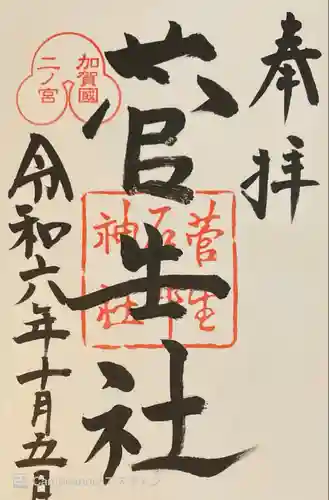 奉拝
加賀國
二ノ宮
菅生社
菅生
石部
神社
令和六年十月五日